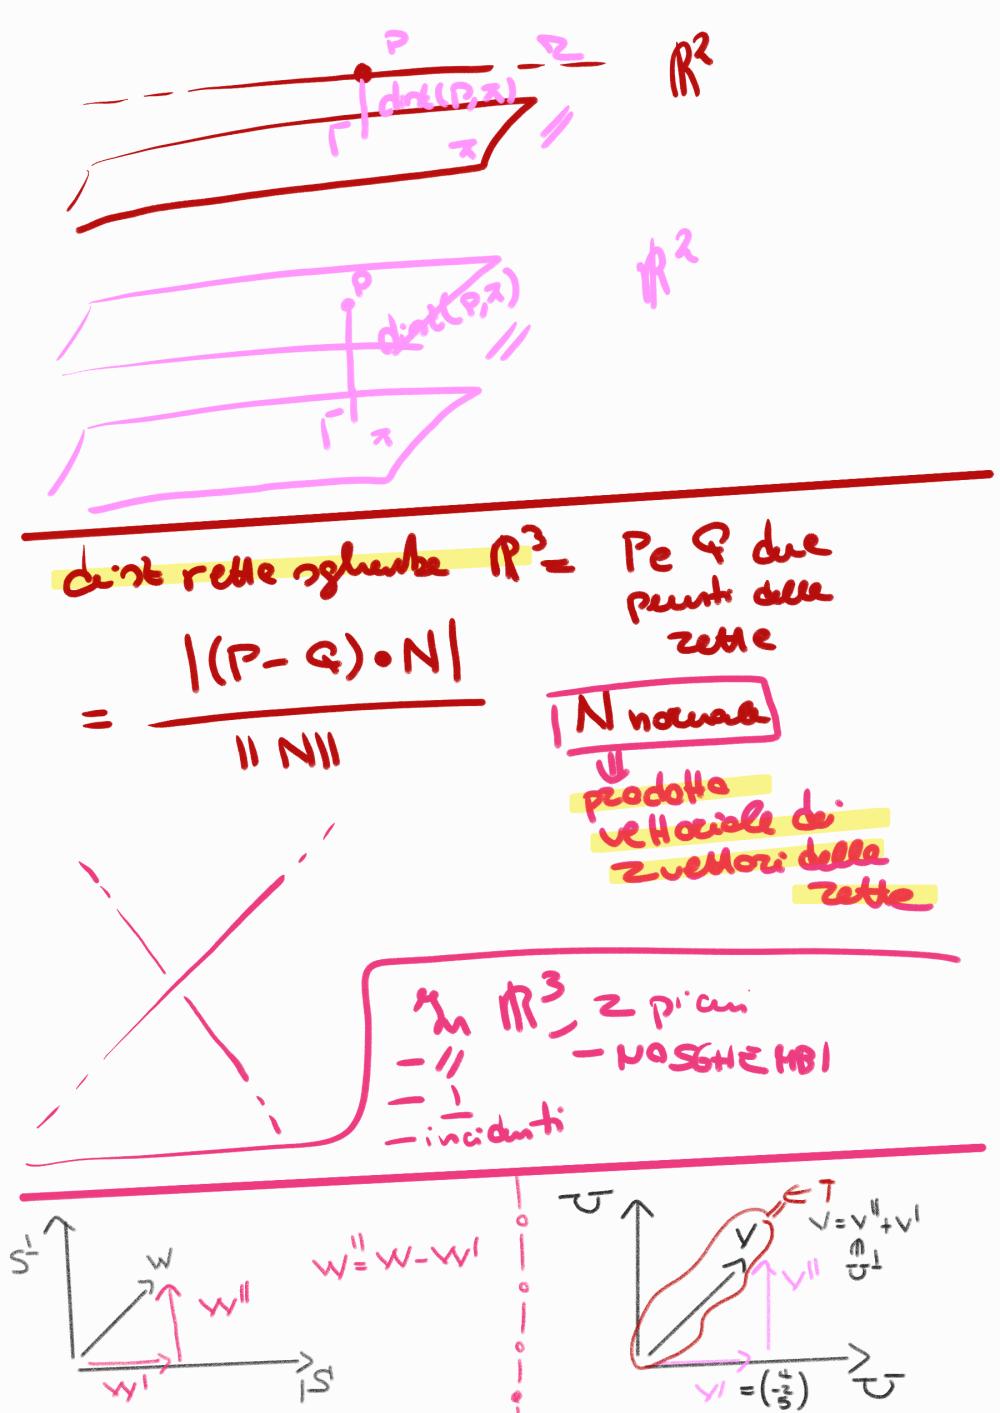 P r ℝ²
dist(P,π)
π //
P ℝ²
dist(P,π)
π //
dist rette sghembe ℝ³ = P e Q due
punti delle
rette
= |(P - Q) • N| / ||N||
N normale
⇓
prodotto
vettoriale dei
2 vettori delle
rette
In ℝ³, 2 piani
- // - NO SGHEMBI
- ⊥
- incidenti
S⊥ W W" W' S
W" = W - W'
U ← T
V V = V" + V'
V" U⊥
V' = (4 -2 5) U